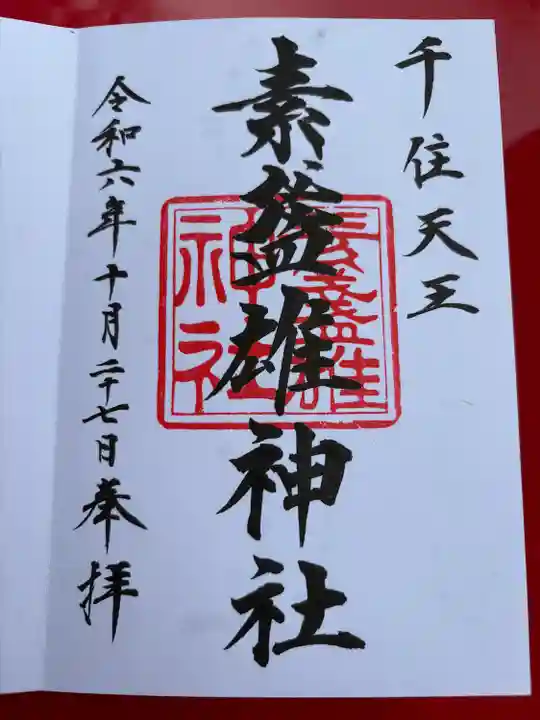 千住天王
素盞雄神社
令和六年十月二十七日奉拝
素盞雄
神社